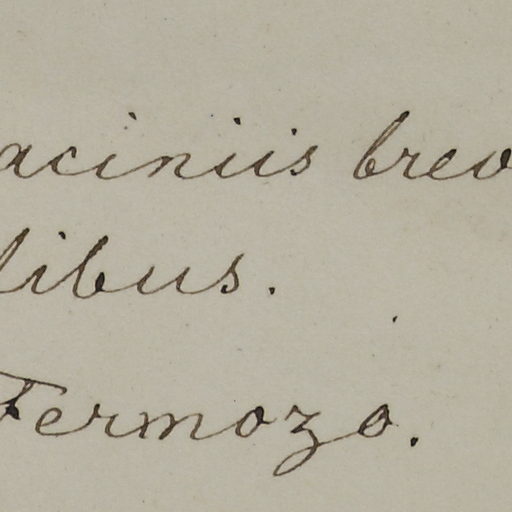 aciniis brev
libus.
Fermozo.